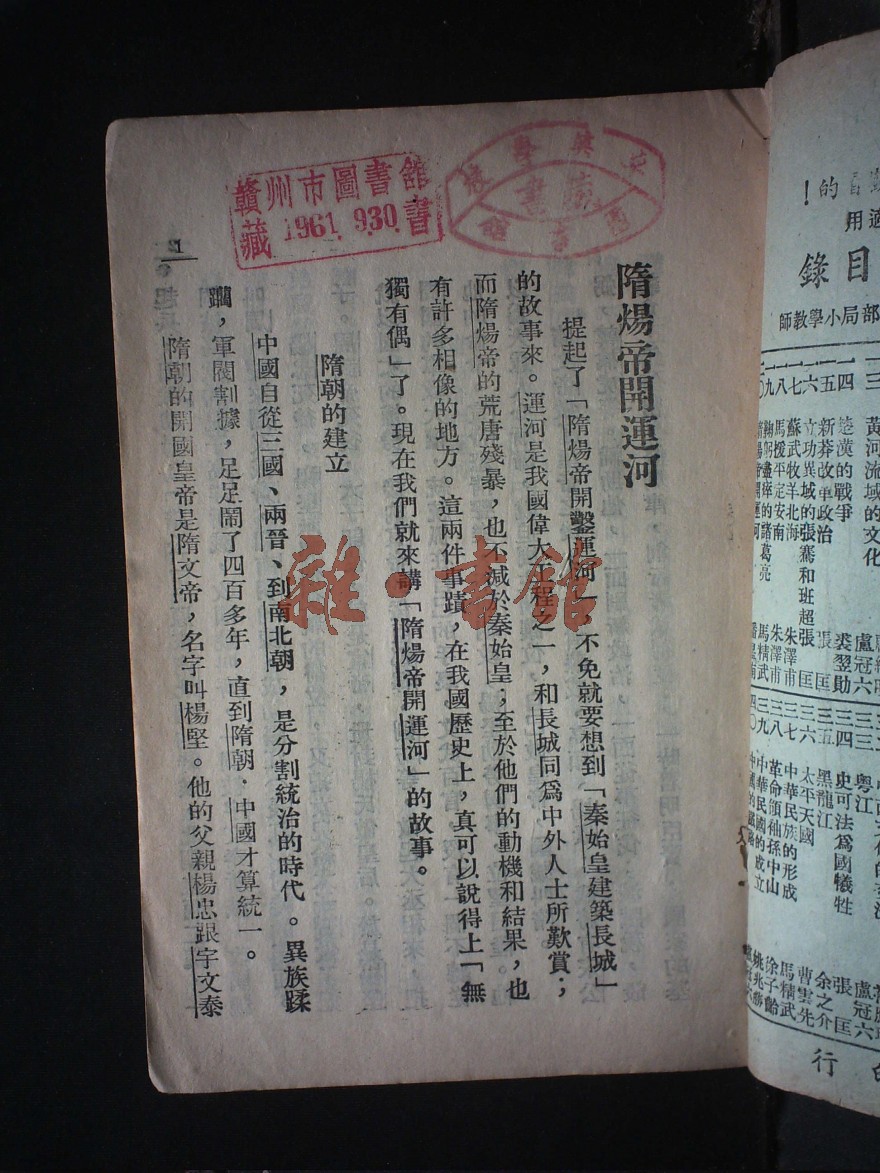 隋煬帝開運河
提起了「隋煬帝開鑿運河」，不免就要想到「秦始皇建築長城」
的故事來。運河是我國偉大工程之一，和長城同爲中外人士所歎賞；
而隋煬帝的荒唐殘暴，也不減於秦始皇；至於他們的動機和結果，也
有許多相像的地方。這兩件事蹟，在我國歷史上，真可以說得上「無
獨有偶」了。現在我們就來講「隋煬帝開運河」的故事。
隋朝的建立
中國自從三國、兩晉、到南北朝，是分割統治的時代。異族蹂
躪，軍閥割據，足足鬧了四百多年，直到隋朝，中國才算統一。
隋朝的開國皇帝是隋文帝，名字叫楊堅。他的父親楊忠跟宇文泰
1
贛州市圖書館
藏 1961. 9.30. 書
藏書
雜·書館
的！
適用
目錄
部局小學教師
黃河流域的文化 盧冠六
楚漢的戰爭 裘翌勛
新莽改革政治 張匡
立功異域的張騫和班超 張匡
蘇武牧羊北海 朱澤甫
馬援平定安南 朱澤甫
鞠躬盡瘁的諸葛亮 馬精武
隋煬帝開運河
粵江 盧冠六
史可法爲國犧牲 張匡
黑龍江 余之介
太平天國 曹雲先
中華民族的形成 馬精武
革命領袖孫中山 徐子飴
中華民國的成立 姚兆勝
行